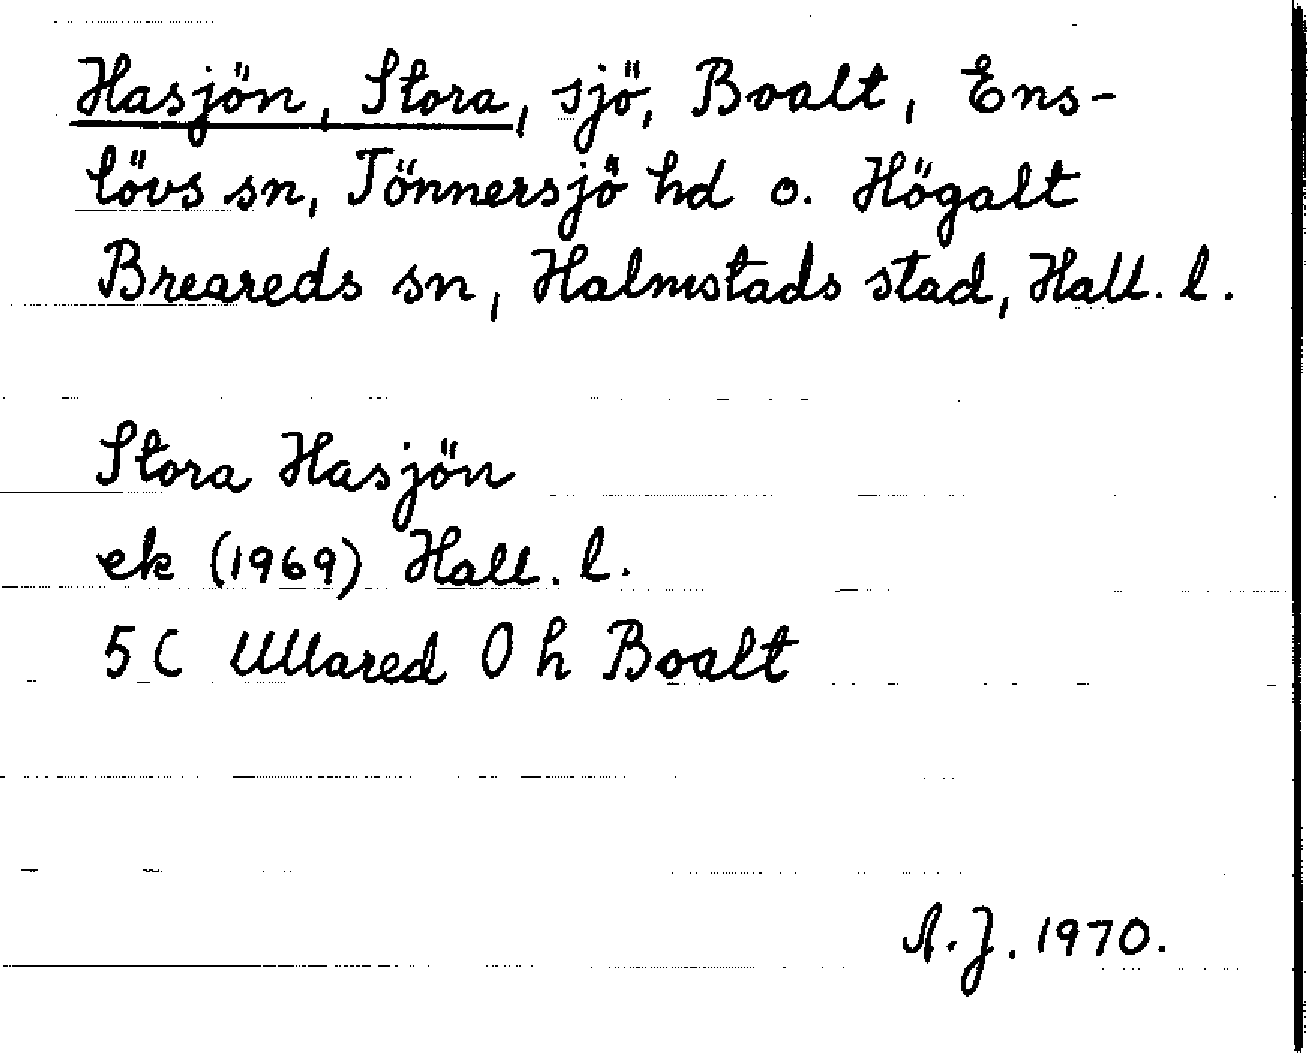 Hasjön, Stora, sjö, Boalt, Ens-
lövs sn, Tönnersjö hd o. Högalt
Breareds sn, Halmstads stad, Hall. l.
Stora Hasjön
ek (1969) Hall. l.
5 C Ullared 0 h Boalt
A.J. 1970.